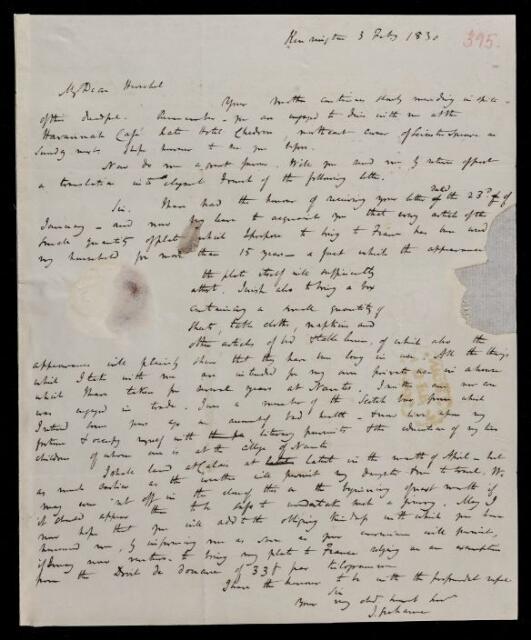 Kensington 3 Feby 1830
395.
My Dear Herschel
Your Mother continues slowly mending in spite
of this dreadful. Remember you are engaged to dine with me at the
Havannah Café late Hotel northeast corner of Leicester Square on
Sunday next hope to see you before.
Now do me a great favor. Will you send me by return of post
a translation into elegant French of the following letter.
Sir. I have had the honour of receiving your letter of the 23d of
January - and now beg leave to acquaint you that every article of the
small quantity of plate which I propose to bring to France has been used
in my household for more than 15 years - a fact which the appearance
of the plate itself will sufficiently
attest. I wish also to bring a box
containing a small quantity of
sheets, table cloths, napkins and
other articles of bed & table linen, of which also the
appearance will plainly shew that they have been long in use. All the things
which I take with me are intended for my own private use in a house
which I have taken for several years at Nantes. I neither am nor ever
was engaged in trade. I am a member of the Scotch bar, from which
I retired some years ago on account of bad health - & now live upon my
fortune & occupy myself with literary pursuits & the education of my
children of whom one is at the college of Nantes.
I shall land at Calais at latest in the month of April - but
as much earlier as the weather will permit my daughter to travel. We
may even set off in the close of this or the beginning of next month if
it should appear to be safe to undertake such a journey. May I
now hope that you will add to the obliging kindness with which you have
honoured me, by informing me as soon as your convenience will permit,
if I may now venture to bring my plate to France relying on an exemption
from the Droit de douane of 338 per kilogramme
I have the honour to be with the profoundest respect
Sir
Your very obdt humble servt